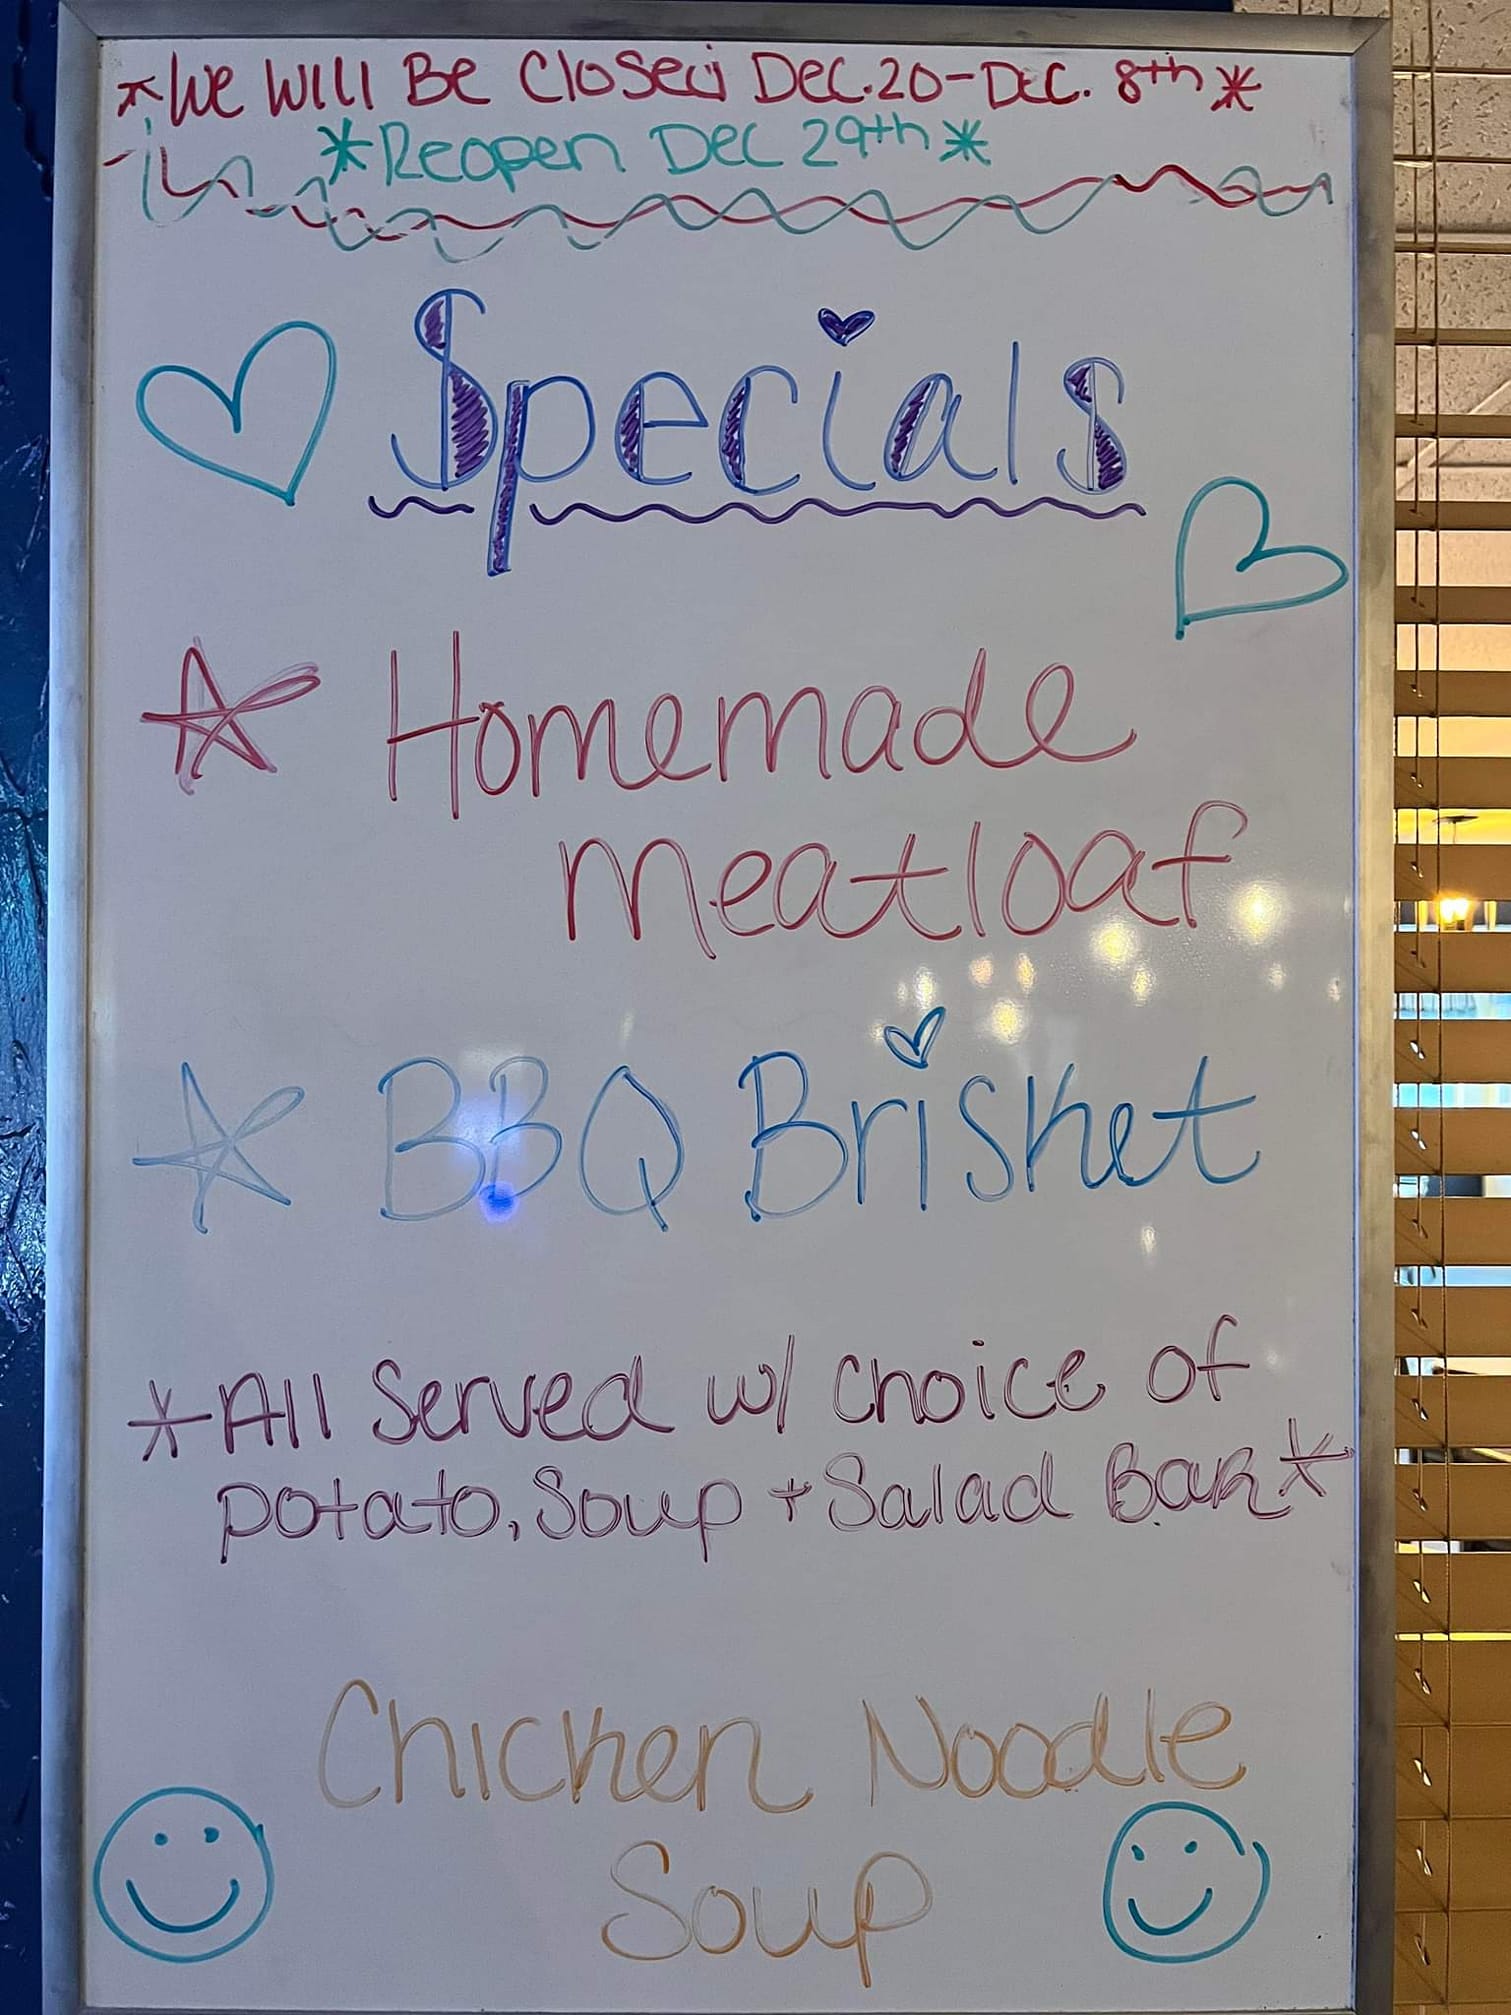 *We Will Be Closed Dec.20-Dec. 8th*
*Reopen Dec 29th*
Specials
Homemade
Meatloaf
BBQ Brisket
*All Served w/ choice of
potato, Soup + Salad Bar*
Chicken Noodle
Soup